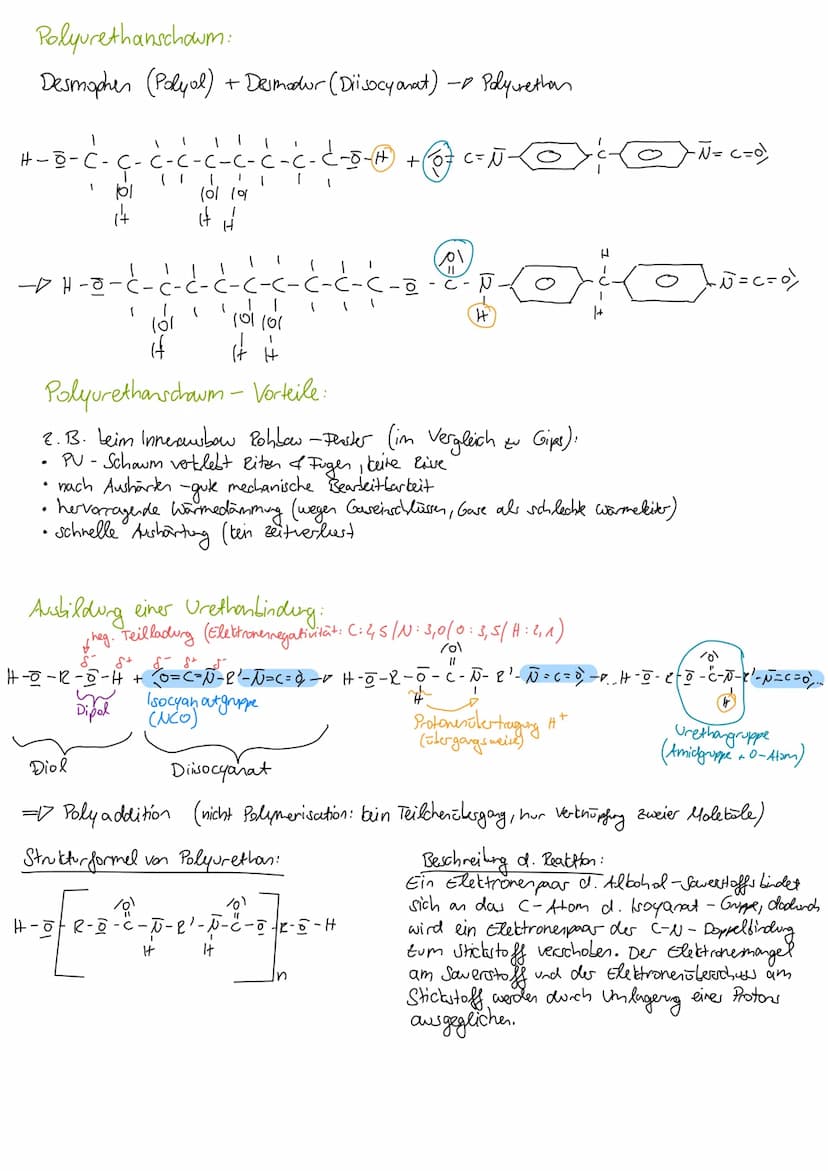 Polyurethanschaum:
Desmophen (Polyol) + Desmodur (Diisocyanat) → Polyurethan
H-O-C-C-C-C-C-C-C-C-C-O-H + O=C=N- -C- -N=C=O
|O| |O| |O|
H H H
→ H-O-C-C-C-C-C-C-C-C-C-O-C-N- -C- -N=C=O
|O| |O| |O| H
H H H
Polyurethanschaum – Vorteile:
z.B. beim Innenausbau Rohbau – Fenster (im Vergleich zu Gips):
• PU-Schaum verklebt Ritzen & Fugen, keine Risse
• nach Aushärten – gute mechanische Bearbeitbarkeit
• hervorragende Wärmedämmung (wegen Gaseinschlüssen, Gase als schlechte Wärmeleiter)
• schnelle Aushärtung (kein Zeitverlust)
Ausbildung einer Urethanbindung:
neg. Teilladung (Elektronennegativität: C:2,5/N:3,0/O:3,5/H:2,1)
δ- δ+ δ- δ+ δ-
H-O-R-O-H + O=C=N-R'-N=C=O → H-O-R-O-C-N-R'-N=C=O → ..H-O-R-O-C-N-R'-N=C=O...
Dipol
Isocyanatgruppe
(NCO)
Protonenübertragung H+
(übergangsweise)
Urethangruppe
(Amidgruppe + O-Atom)
Diol
Diisocyanat
⇒ Polyaddition (nicht Polymerisation: kein Teilchenübergang, nur Verknüpfung zweier Moleküle)
Strukturformel von Polyurethan:
H-O-[R-O-C-N-R'-N-C-O-]R-O-H
H H
n
Beschreibung d. Reaktion:
Ein Elektronenpaar d. Alkohol-Sauerstoffs bindet
sich an das C-Atom d. Isoyanat-Gruppe, dadurch
wird ein Elektronenpaar der C-N-Doppelbindung
zum Stickstoff verschoben. Der Elektronenmangel
am Sauerstoff und der Elektronenüberschuss am
Stickstoff werden durch Umlagerung eines Protons
ausgeglichen.